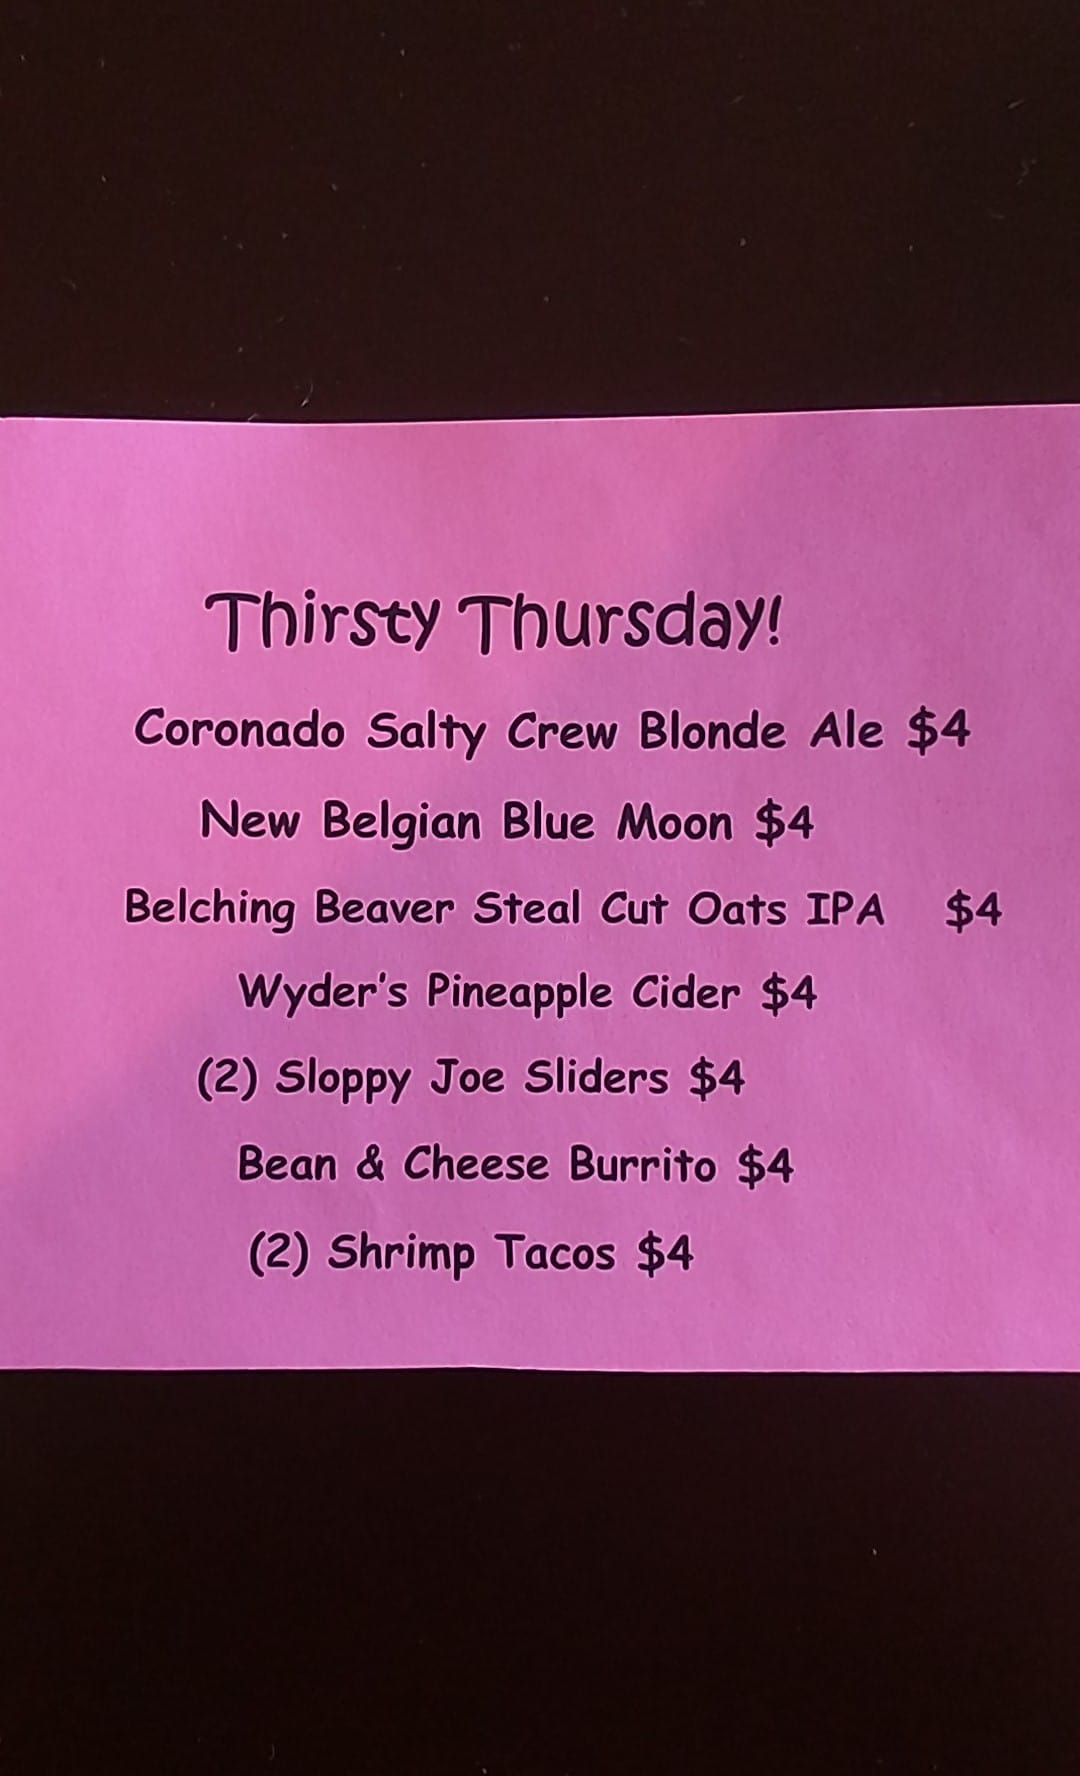 Thirsty Thursday!
Coronado Salty Crew Blonde Ale $4
New Belgian Blue Moon $4
Belching Beaver Steal Cut Oats IPA $4
Wyder's Pineapple Cider $4
(2) Sloppy Joe Sliders $4
Bean & Cheese Burrito $4
(2) Shrimp Tacos $4